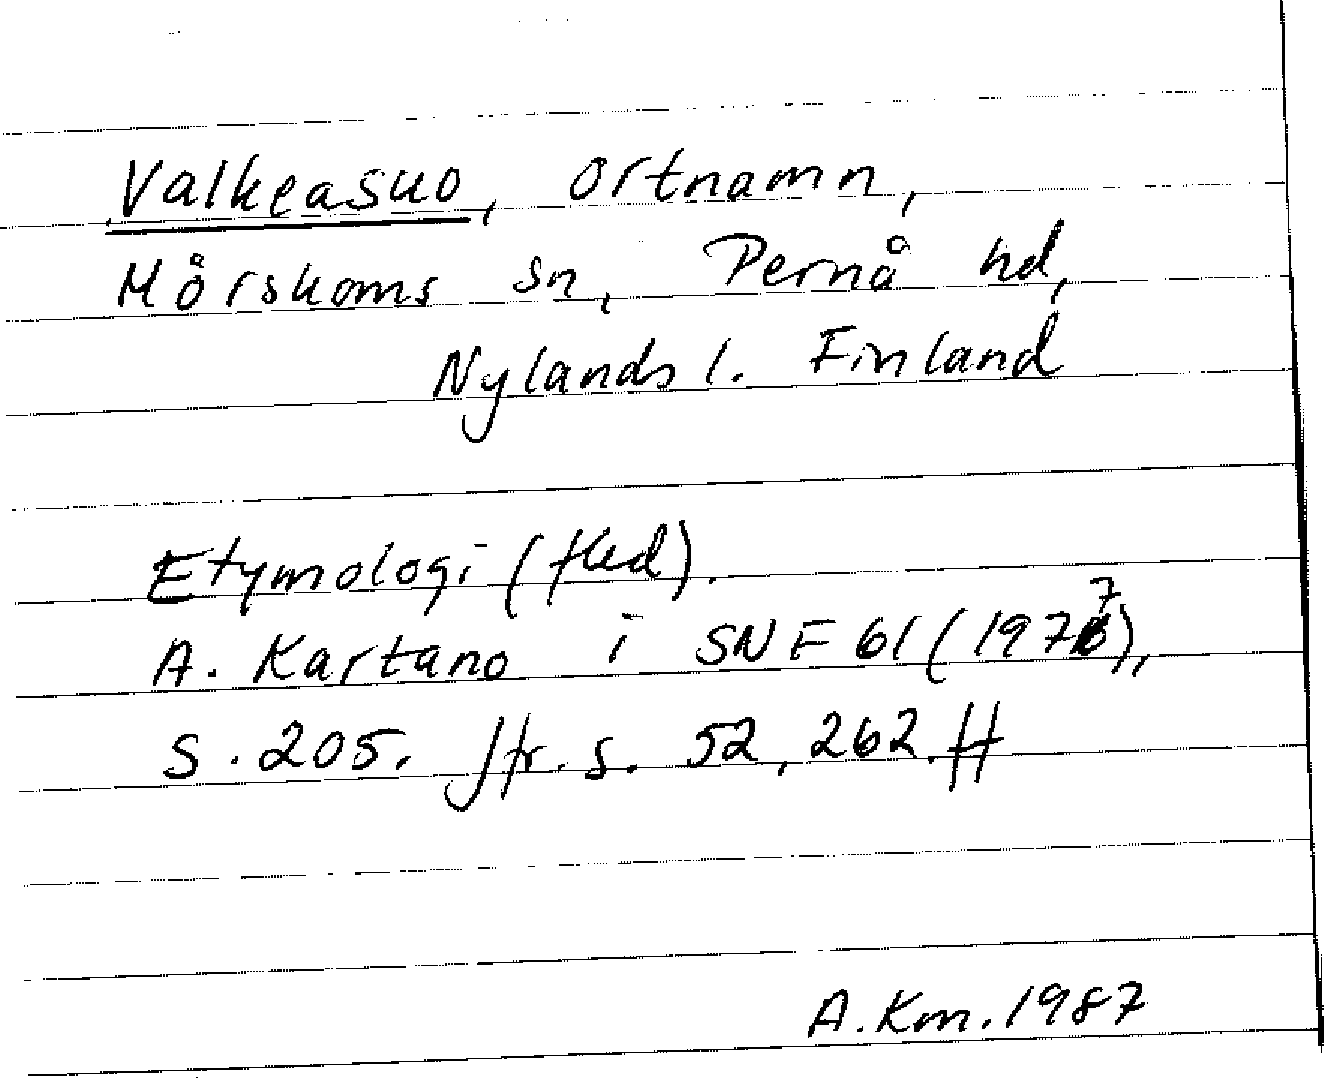 Valkeasuo, ortnamn,
Mörskoms sn, Pernå hd,
Nylands l. Finland
Etymologi (fled).
A. Kartano i SNF 61 (1977),
S. 205. Jfr. s. 52, 262 ff
A.Km. 1987